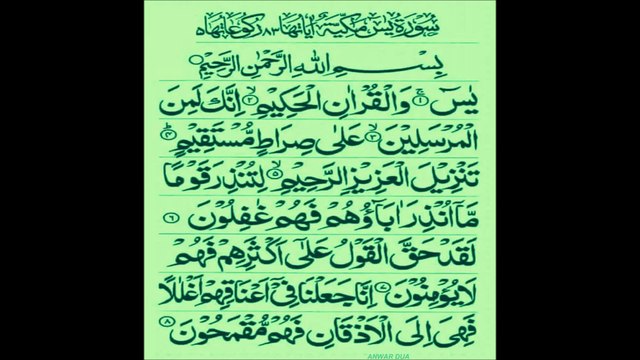 سُوْرَةُ يٰسٓ مَكِّيَّةٌ اٰيَاتُهَا ٨٣ رُكُوْعَاتُهَا ٥
بِسْمِ اللّٰهِ الرَّحْمٰنِ الرَّحِيْمِ
يٰسٓ ۝١ وَالْقُرْاٰنِ الْحَكِيْمِ ۝٢ اِنَّكَ لَمِنَ
الْمُرْسَلِيْنَ ۝٣ عَلٰى صِرَاطٍ مُّسْتَقِيْمٍ ۝٤
تَنْزِيْلَ الْعَزِيْزِ الرَّحِيْمِ ۝٥ لِتُنْذِرَ قَوْمًا
مَّآ اُنْذِرَ اٰبَآؤُهُمْ فَهُمْ غٰفِلُوْنَ ۝٦
لَقَدْ حَقَّ الْقَوْلُ عَلٰٓى اَكْثَرِهِمْ فَهُمْ
لَا يُؤْمِنُوْنَ ۝٧ اِنَّا جَعَلْنَا فِيْٓ اَعْنَاقِهِمْ اَغْلٰلًا
فَهِيَ اِلَى الْاَذْقَانِ فَهُمْ مُّقْمَحُوْنَ ۝٨
ANWAR DUA